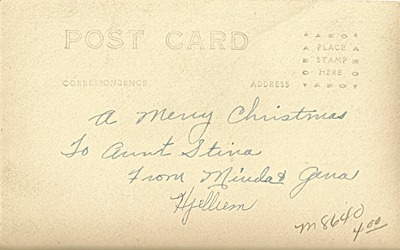 POST CARD
AZO
PLACE
STAMP
HERE
AZO
CORRESPONDENCE
ADDRESS
A Merry Christmas
To Aunt Stina
From Minda & Gena
Hjelliem
m8640
4.00